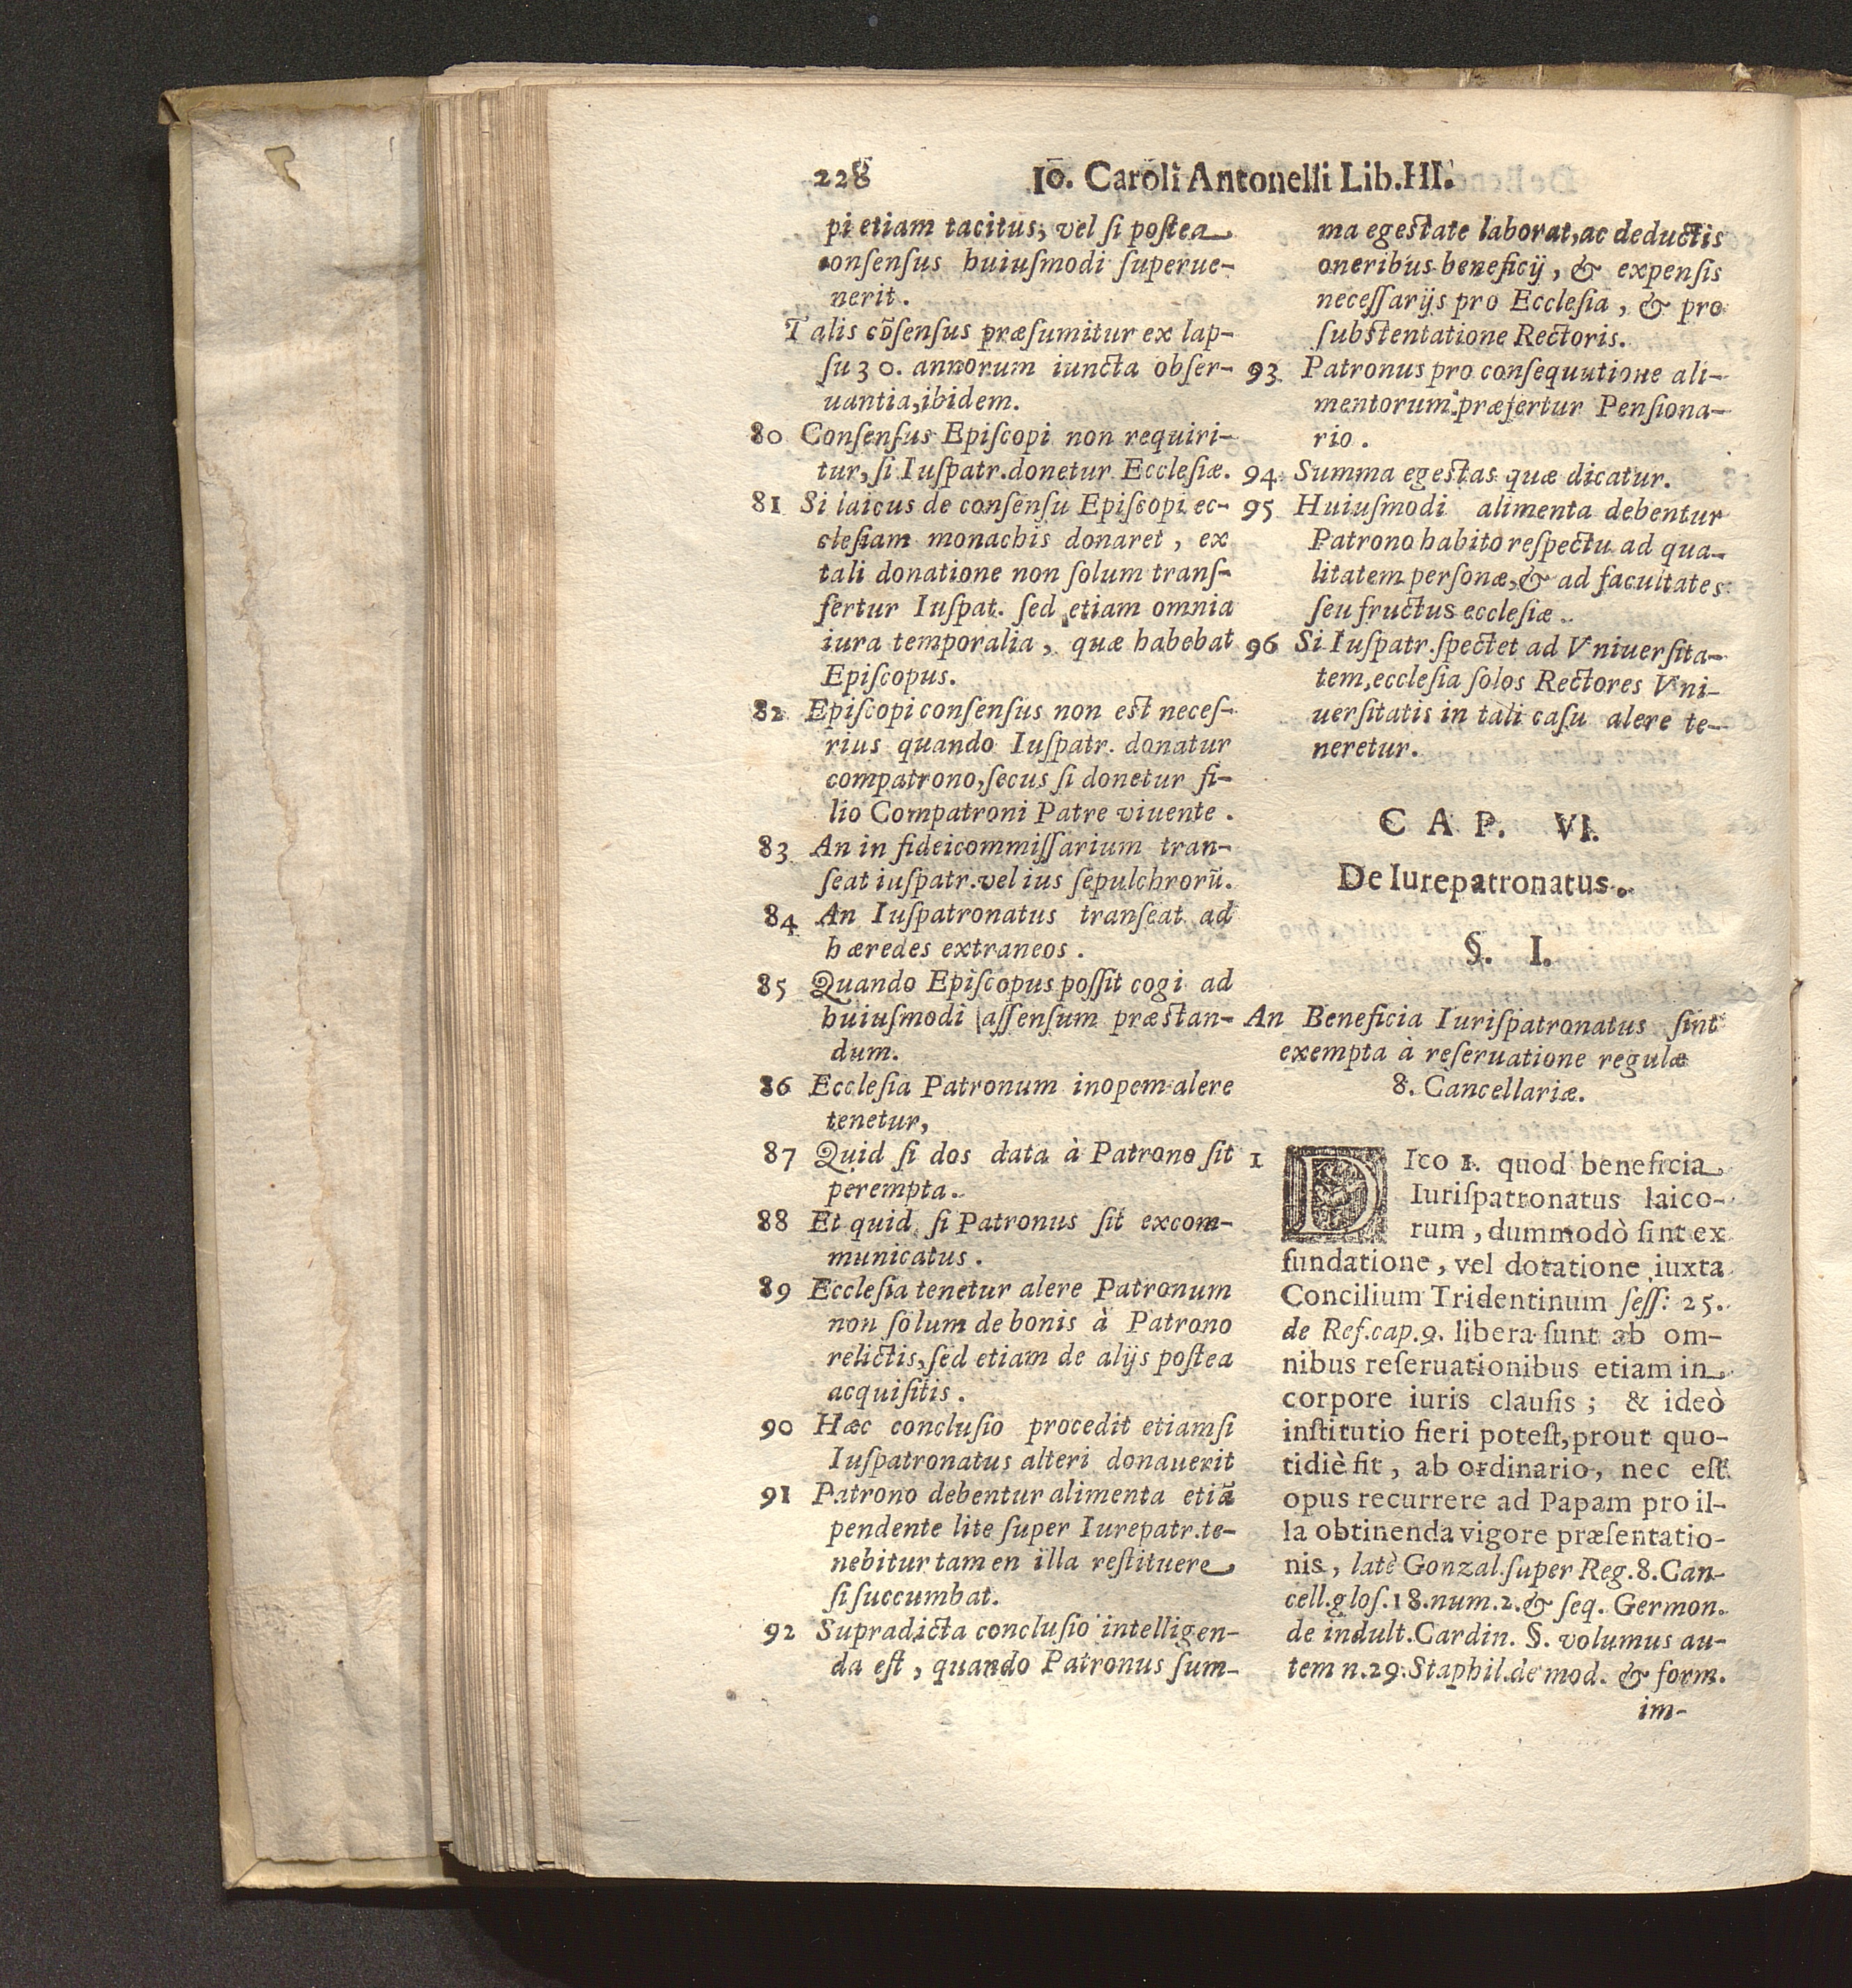 228 Io. Caroli Antonelli Lib.III.
pi etiam tacitus, vel si postea
consensus huiusmodi superue-
nerit.
Talis cõsensus præsumitur ex lap-
su 30. annorum iuncta obser-
uantia, ibidem.
80 Consensus Episcopi non requiri-
tur, si Iuspatr. donetur Ecclesiæ.
81 Si laicus de consensu Episcopi ec-
clesiam monachis donaret, ex
tali donatione non solum trans-
fertur Iuspat. sed etiam omnia
iura temporalia, quæ habebat
Episcopus.
82 Episcopi consensus non est neces-
rius quando Iuspatr. donatur
compatrono, secus si donetur fi-
lio Compatroni Patre viuente.
83 An in fideicommissarium tran-
seat iuspatr. vel ius sepulchrorũ.
84 An Iuspatronatus transeat ad
hæredes extraneos.
85 Quando Episcopus possit cogi ad
huiusmodi assensum præstan-
dum.
86 Ecclesia Patronum inopem alere
tenetur,
87 Quid si dos data à Patrono sit
perempta.
88 Et quid si Patronus sit excom-
municatus.
89 Ecclesia tenetur alere Patronum
non solum de bonis à Patrono
relictis, sed etiam de alijs postea
acquisitis.
90 Hæc conclusio procedit etiamsi
Iuspatronatus alteri donauerit
91 Patrono debentur alimenta etiã
pendente lite super Iurepatr. te-
nebitur tamen illa restituere
si succumbat.
92 Supradicta conclusio intelligen-
da est, quando Patronus sum-
ma egestate laborat, ac deductis
oneribus beneficij, & expensis
necessarijs pro Ecclesia, & pro
substentatione Rectoris.
93 Patronus pro consequutione ali-
mentorum præfertur Pensiona-
rio.
94 Summa egestas quæ dicatur.
95 Huiusmodi alimenta debentur
Patrono habito respectu ad qua-
litatem personæ, & ad facultates
seu fructus ecclesiæ.
96 Si Iuspatr. spectet ad Vniuersita-
tem, ecclesia solos Rectores Vni-
uersitatis in tali casu alere te-
neretur.
CAP. VI.
De Iurepatronatus.
§. I.
An Beneficia Iurispatronatus sint
exempta à reseruatione regulæ
8. Cancellariæ.
1 DIco 1. quod beneficia
Iurispatronatus laico-
rum, dummodò sint ex
fundatione, vel dotatione iuxta
Concilium Tridentinum sess. 25.
de Ref. cap. 9. libera sunt ab om-
nibus reseruationibus etiam in
corpore iuris clausis; & ideò
institutio fieri potest, prout quo-
tidiè fit, ab ordinario, nec est
opus recurrere ad Papam pro il-
la obtinenda vigore præsentatio-
nis, latè Gonzal. super Reg. 8. Can-
cell. glos. 18. num. 2. & seq. Germon.
de indult. Cardin. §. volumus au-
tem n. 29. Staphil. de mod. & form.
im-